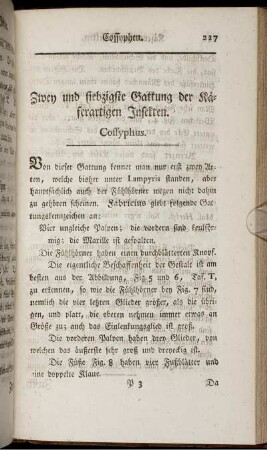 Cossyphen. 227
Zwey und siebzigste Gattung der Kä-
ferartigen Insekten.
Cossyphus.
Von dieser Gattung kennet man nur erst zwey Ar-
ten, welche bisher unter Lampyris standen, aber
hauptsächlich auch der Fühlhörner wegen nicht dahin
zu gehören scheinen. Fabricius giebt folgende Gat-
tungskennzeichen an:
Vier ungleiche Palpen; die vordern sind keulför-
mig; die Maxille ist gespalten.
Die Fühlhörner haben einen durchblätterten Knopf.
Die eigentliche Beschaffenheit der Gestalt ist am
besten aus der Abbildung, Fig. 5 und 6, Taf. T,
zu erkennen, so wie die Fühlhörner bey Fig. 7 sind,
nemlich die vier letzten Glieder größer, als die übri-
gen, und platt, die oberen nehmen immer etwas an
Größe zu; auch das Einlenkungsglied ist groß.
Die vorderen Palpen haben drey Glieder, von
welchen das äußerste sehr groß und dreyeckig ist.
Die Füße Fig. 8 haben vier Fußblätter und
eine doppelte Klaue.
P 3 Da